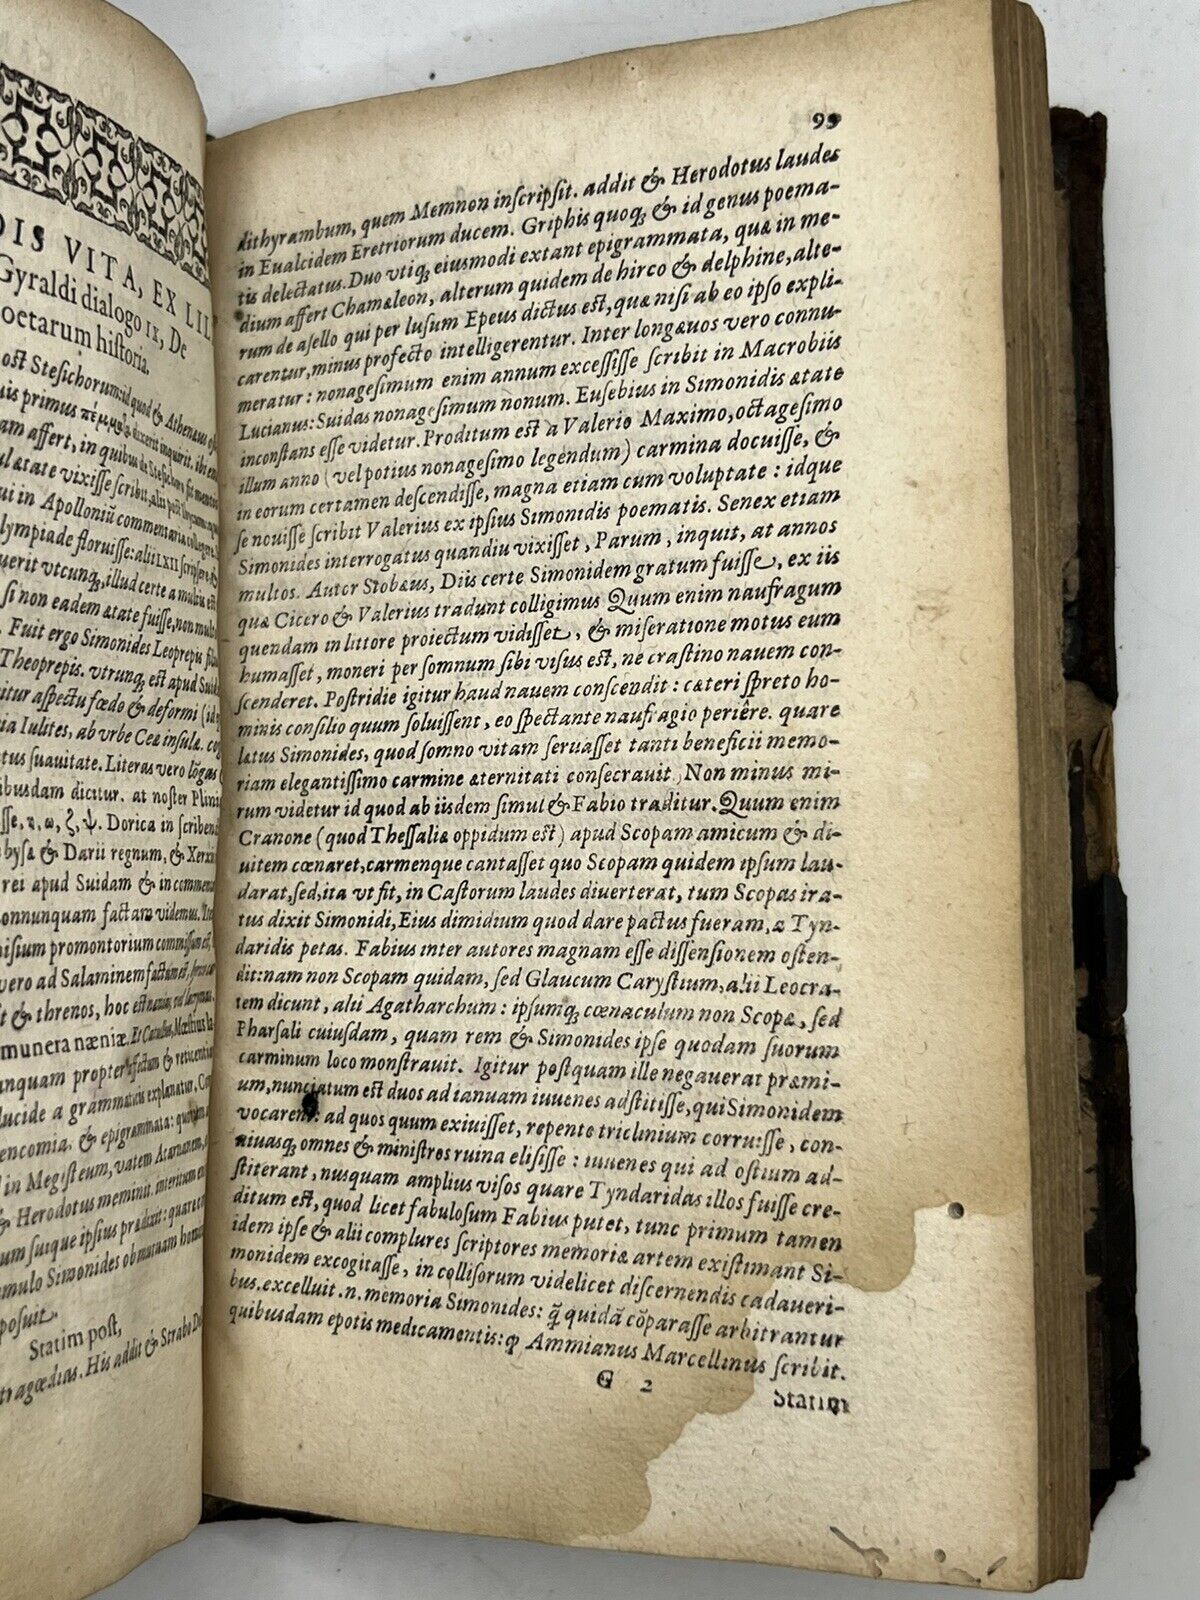 DIS VITA, EX LIL
Gyraldi dialogo IX, De
oetarum historia.
ost Stesichorum: id quod & Athenæus
uis primus
am affert, in quibus de Stesichoro sit mentio
ul ætate vixisse scribit, alij post
ui in Apolloniũ commentaria
lympiade floruisse: alij LXII
uerit vtcunq;, illud certe a multis est
si non eadem ætate fuisse, non mult
Fuit ergo Simonides Leoprepis fil
Theoprepis. vtrunq; est apud Suid
itur aspectu fœdo & deformi (id
ia Iulites, ab vrbe Cea insula. co
tus suauitate. Literas vero lõgas
ibusdam dicitur. at noster Plini
sse, η, ω, ξ, ψ. Dorica in scribend
bysæ & Darii regnum, & Xerxi
rei apud Suidam & in commen
onnunquam factam videmus.
isium promontorium commissum est,
vero ad Salaminem factum est,
t & threnos, hoc est næniæ, vel lacrymas.
munera næniæ. Et Catullus, Mœstius la-
nquam propter affectum & reticenti
lucide a grammaticis explanatur,
encomia. & epigrammata:
in Megisteum, vatem Acarnanem,
& Herodotus meminit. meritum
um suique ipsius prædixit: quare
mulo Simonides obmutuam
posuit.
Statim post,
tragœdias. His addit & Strabo
99
dithyrambum, quem Memnon inscripsit. addit & Herodotus laudes
in Eualcidem Eretriorum ducem. Griphis quoq; & id genus poema-
tis delectatus. Duo vtiq; eiusmodi extant epigrammata, quæ in me-
dium affert Chamæleon, alterum quidem de hirco & delphine, alte-
rum de asello qui per lusum Epeus dictus est, quæ nisi ab eo ipso expli-
carentur, minus profecto intelligerentur. Inter longæuos vero connu-
meratur: nonagesimum enim annum excessisse scribit in Macrobiis
Lucianus: Suidas nonagesimum nonum. Eusebius in Simonidis ætate
inconstans esse videtur. Proditum est a Valerio Maximo, octagesimo
illum anno (vel potius nonagesimo legendum) carmina docuisse, &
in eorum certamen descendisse, magna etiam cum voluptate: idque
se nouisse scribit Valerius ex ipsius Simonidis poematis. Senex etiam
Simonides interrogatus quandiu vixisset, Parum, inquit, at annos
multos. Autor Stobæus, Diis certe Simonidem gratum fuisse, ex iis
quæ Cicero & Valerius tradunt colligimus Quum enim naufragum
quendam in littore proiectum vidisset, & miseratione motus eum
humasset, moneri per somnum sibi visus est, ne crastino nauem con-
scenderet. Postridie igitur haud nauem conscendit: cæteri spreto ho-
minis consilio quum soluissent, eo spectante naufragio periêre. quare
lætus Simonides, quod somno vitam seruasset tanti beneficii memo-
riam elegantissimo carmine æternitati consecrauit. Non minus mi-
rum videtur id quod ab iisdem simul & Fabio traditur. Quum enim
Cranone (quod Thessaliæ oppidum est) apud Scopam amicum & di-
uitem cœnaret, carmenque cantasset quo Scopam quidem ipsum lau-
darat, sed, ita vt fit, in Castorum laudes diuerterat, tum Scopas ira-
tus dixit Simonidi, Eius dimidium quod dare pactus fueram, a Tyn-
daridis petas. Fabius inter autores magnam esse dissensionem osten-
dit: nam non Scopam quidam, sed Glaucum Carystium, alii Leocra-
tem dicunt, alii Agatharchum: ipsumq; cœnaculum non Scopæ, sed
Pharsali cuiusdam, quam rem & Simonides ipse quodam suorum
carminum loco monstrauit. Igitur postquam ille negauerat præmi-
um, nunciatum est duos ad ianuam iuuenes adstitisse, qui Simonidem
vocarent: ad quos quum exiuisset, repente triclinium corruisse, con-
niuasq; omnes & ministros ruina elisisse: iuuenes qui ad ostium ad-
stiterant, nusquam amplius visos quare Tyndaridas illos fuisse cre-
ditum est, quod licet fabulosum Fabius putet, tunc primum tamen
idem ipse & alii complures scriptores memoriæ artem existimant Si-
monidem excogitasse, in collisorum videlicet discernendis cadaueri-
bus. excelluit .n. memoria Simonides: q̃ quidã cõparasse arbitrantur
quibusdam epotis medicamentis: ꝙ Ammianus Marcellinus scribit.
G 2
Statim